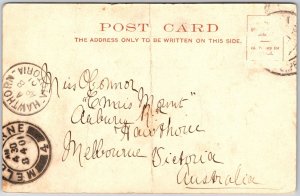 POST CARD
THE ADDRESS ONLY TO BE WRITTEN ON THIS SIDE.
HAWTHORN
Miss O'Connor
"Emris Mount"
Auburn Rd
Hawthorn
Melbourne Victoria
Australia
MELBOURNE
4